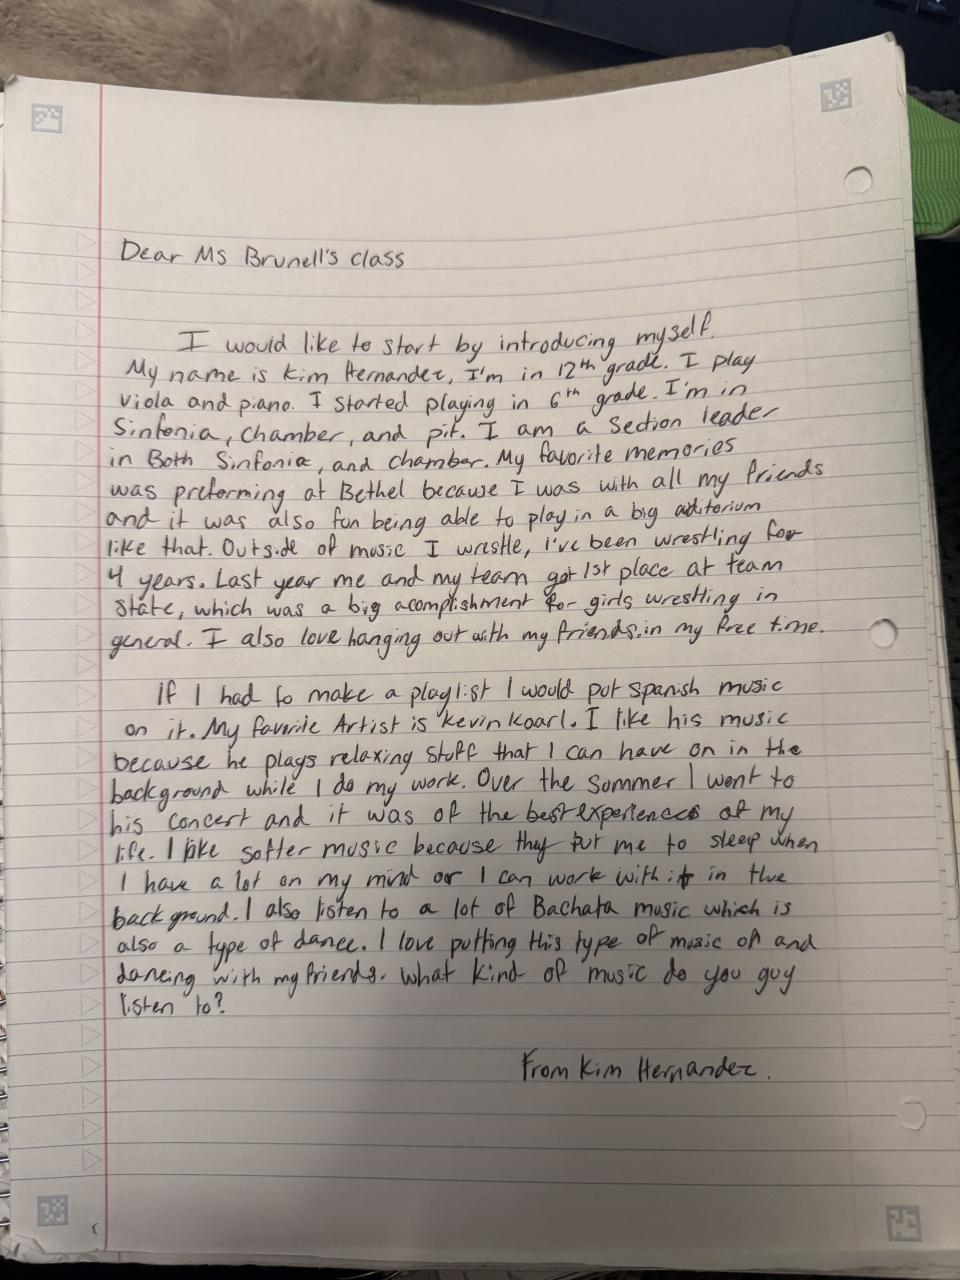 Dear Ms Brunell's class
I would like to start by introducing myself.
My name is Kim Hernandez, I'm in 12th grade. I play
viola and piano. I started playing in 6th grade. I'm in
Sinfonia, Chamber, and pit. I am a Section leader
in Both Sinfonia, and Chamber. My favorite memories
was preforming at Bethel because I was with all my friends
and it was also fun being able to play in a big auditorium
like that. Outside of music I wrestle, I've been wrestling for
4 years. Last year me and my team got 1st place at team
State, which was a big acomplishment for girls wrestling in
general. I also love hanging out with my friends, in my free time.
If I had to make a playlist I would put spanish music
on it. My favorite Artist is Kevin Kaarl. I like his music
because he plays relaxing stuff that I can have on in the
background while I do my work. Over the Summer I went to
his concert and it was of the best experiences of my
life. I like softer music because they put me to sleep when
I have a lot on my mind or I can work with it in the
background. I also listen to a lot of Bachata music which is
also a type of dance. I love putting this type of music on and
dancing with my friends. What kind of music do you guy
listen to?
From Kim Hernandez.